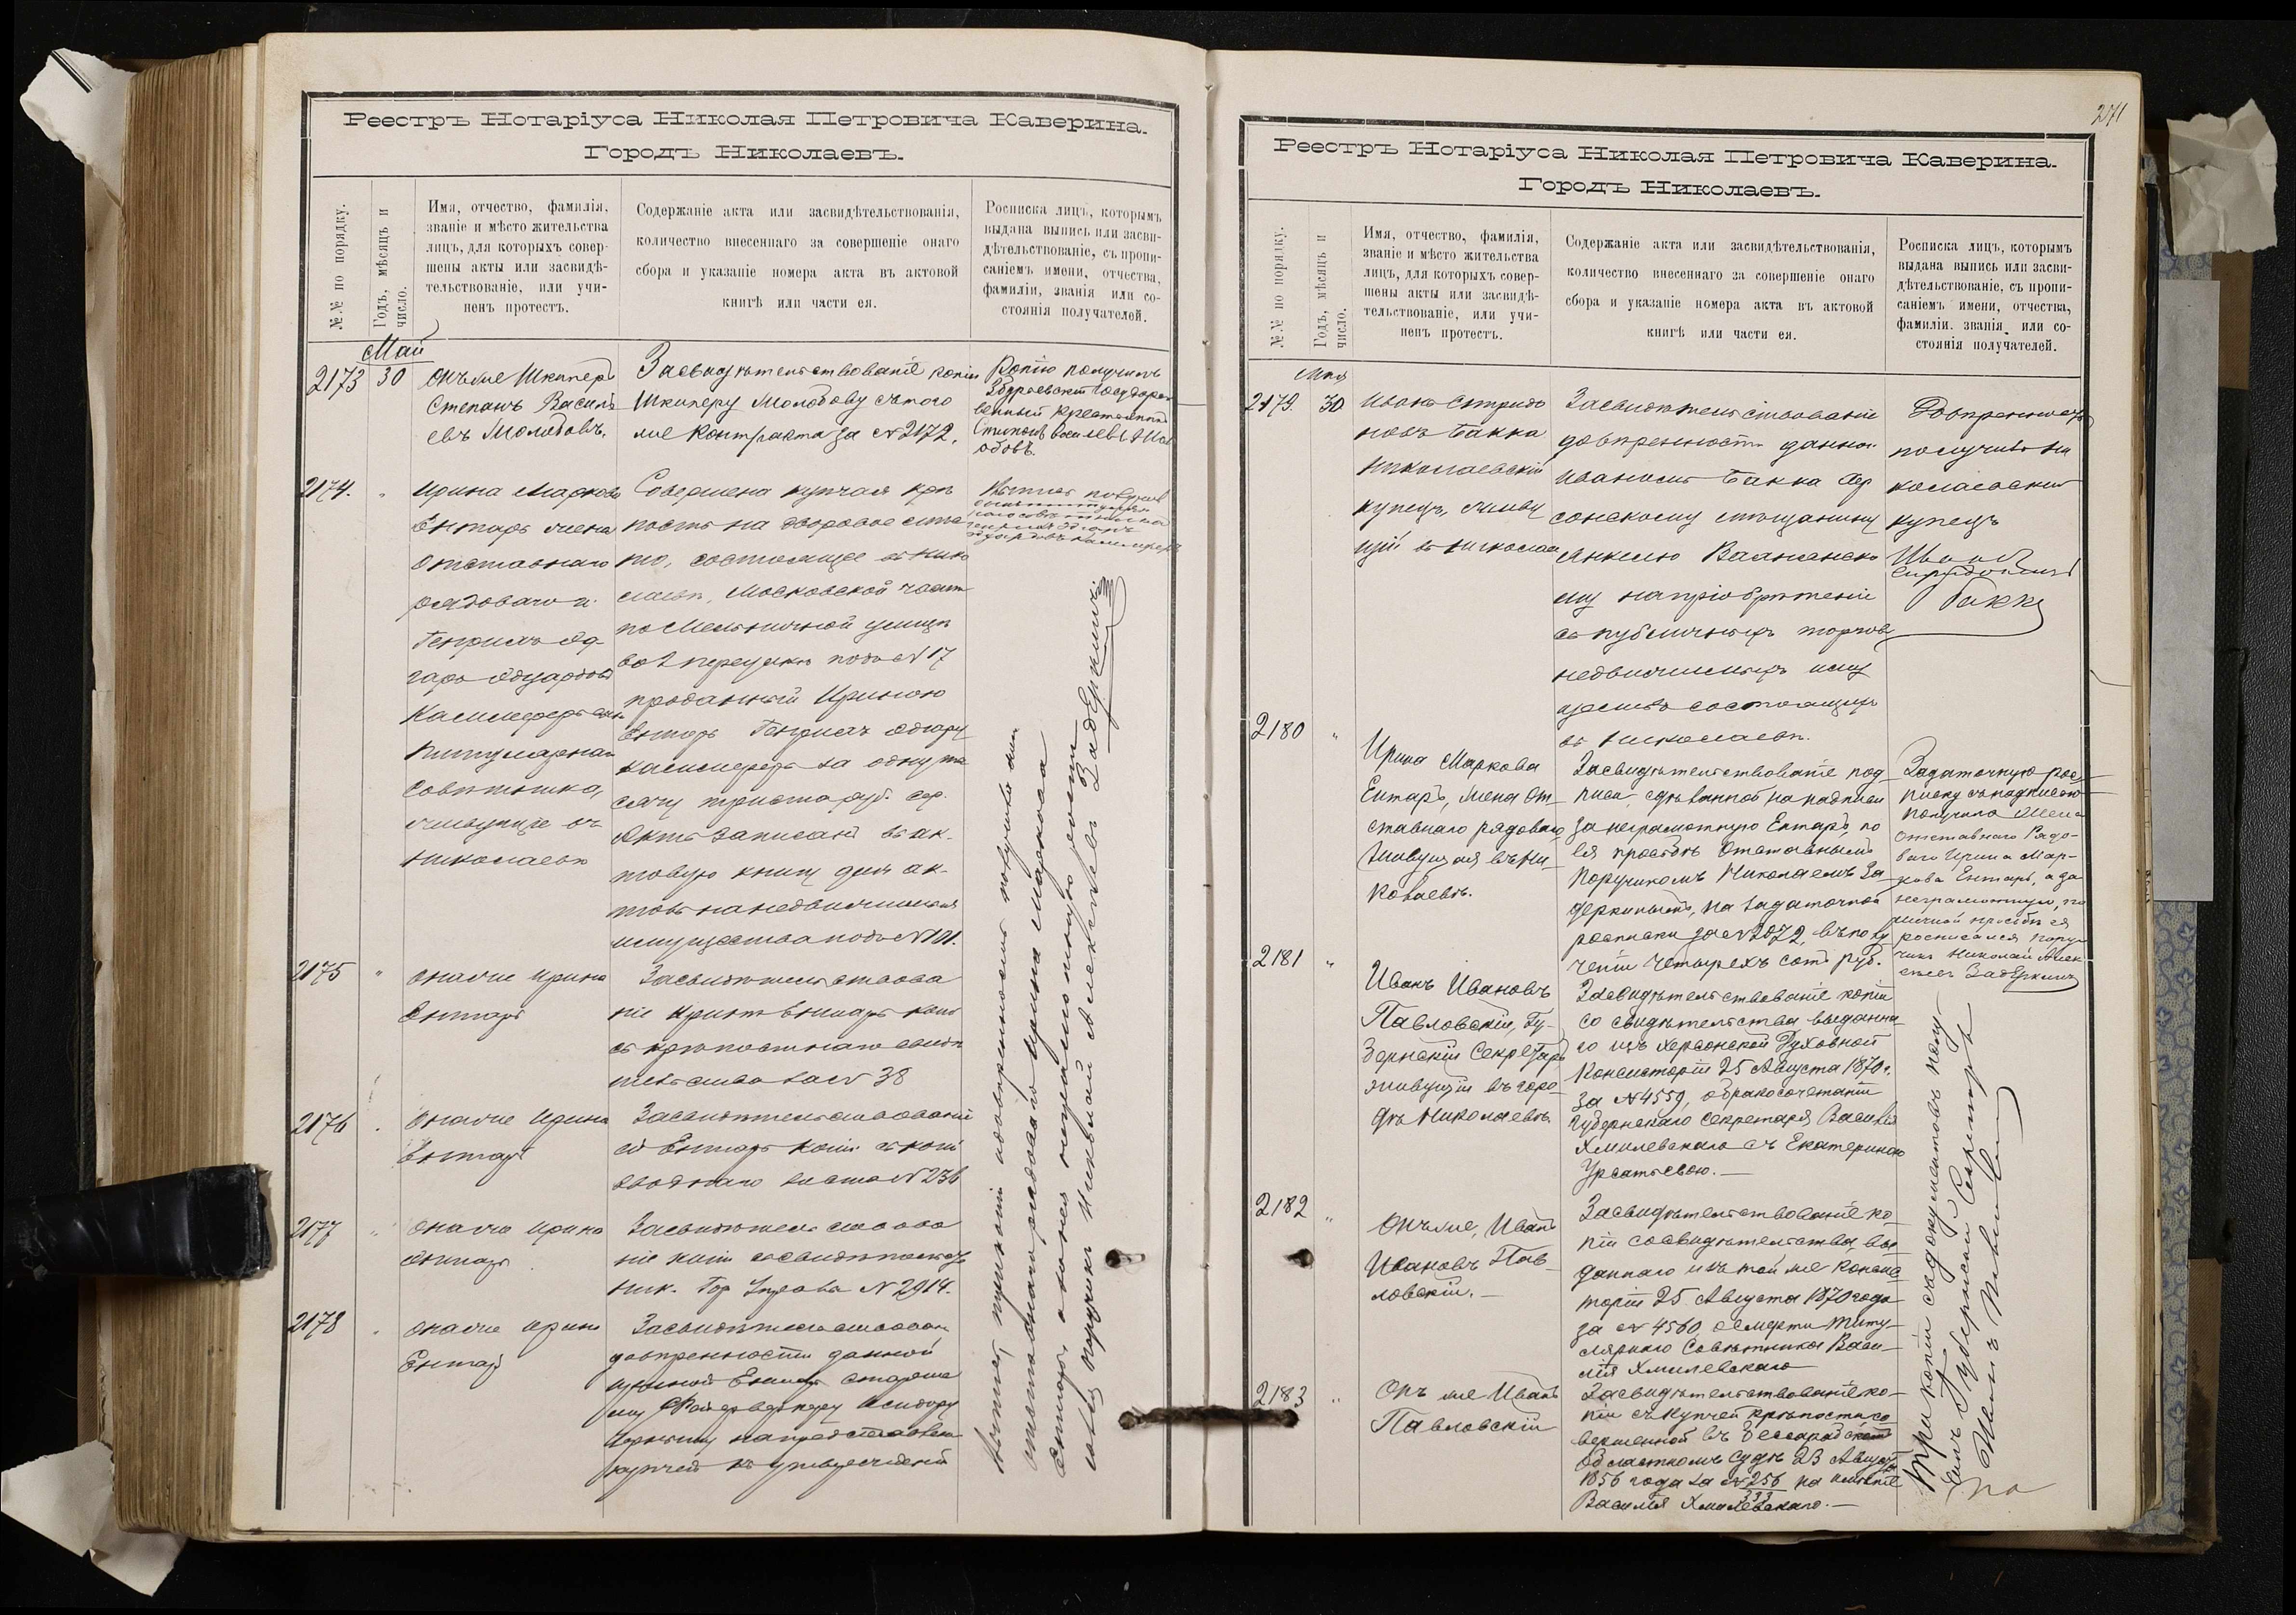 Реестръ Нотаріуса Николая Петровича Каверина.
Городъ Николаевъ.
№№ по порядку.
Годъ, мѣсяцъ и
число.
Имя, отчество, фамилія,
званіе и мѣсто жительства
лицъ, для которыхъ совер-
шены акты или засвидѣ-
тельствованіе, или учи-
ненъ протестъ.
Содержаніе акта или засвидѣтельствованія,
количество внесеннаго за совершеніе онаго
сбора и указаніе номера акта въ актовой
книгѣ или части ея.
Росписка лицъ, которымъ
выдана выпись или засви-
дѣтельствованіе, съ пропи-
саніемъ имени, отчества,
фамиліи, званія или со-
стоянія получателей.
Май
2173 30
Онъ же Шкиперъ
Степанъ Василь
евъ Молобовъ.
Засвидѣтельствованіе копіи
Шкиперу Молобову съ того
же контракта за № 2172.
Копію получилъ
2174.
Ирина Маркова
Ентаръ жена
отставнаго
рядоваго и
Генрихъ Эд-
гаръ Эдуардовъ
Титулярнаго
Совѣтника,
живущіе въ
Николаевѣ
Совершена купчая крѣ
пость на дворовое мѣс
то, состоящее въ Нико
лаевѣ, Московской части
по Мельничной улицѣ
подъ № 17
проданный Ириною
Ентаръ Генриху Эдгару
за одну ты
сячу триста руб. сер.
Актъ записанъ въ ак-
товую книгу для ак-
товъ на недвижимыя
имущества подъ № 101.
2175 "
Она же Ирина
Ентаръ
Засвидѣтельствова
ніе Иринѣ Ентаръ копіи
съ крѣпостнаго свидѣ
тельства за № 38
2176
Она же Ирина
Ентаръ
Засвидѣтельствованіе
ей Ентаръ копіи съ копіи
вводнаго листа № 236
2177 "
Она же Ирина
Ентаръ
Засвидѣтельствова
ніе копіи съ свидѣтельства
Ник. Гор Управы № 2914.
2178
Она же Ирина
Ентаръ
Засвидѣтельствован
довѣренности данной
Ириной Ентаръ
купчей къ утвержденію
отставнаго рядоваго Ирина Маркова
поручикъ Николай Алексѣевъ Задеркинъ
201
Реестръ Нотаріуса Николая Петровича Каверина.
Городъ Николаевъ.
№№ по порядку.
Годъ, мѣсяцъ и
число.
Имя, отчество, фамилія,
званіе и мѣсто жительства
лицъ, для которыхъ совер-
шены акты или засвидѣ-
тельствованіе, или учи-
ненъ протестъ.
Содержаніе акта или засвидѣтельствованія,
количество внесеннаго за совершеніе онаго
сбора и указаніе номера акта въ актовой
книгѣ или части ея.
Росписка лицъ, которымъ
выдана выпись или засви-
дѣтельствованіе, съ пропи-
саніемъ имени, отчества,
фамиліи. званія или со-
стоянія получателей.
Мая
2179. 30
Иванъ Спиридо
новъ Бакка
Николаевскій
купецъ, живу
щій въ Николаевѣ
Засвидѣтельствованіе
довѣренности данной
Иваномъ Бакка Хер
сонскому мѣщанину
му на пріобрѣтеніе
съ публичныхъ торговъ
недвижимыхъ иму
ществъ состоящихъ
въ Николаевѣ.
Довѣренность
получилъ Ни
колаевскій
купецъ
Иванъ
Спиридоновъ
Бакка
2180 "
Ирина Маркова
Ентаръ, жена от
ставнаго рядоваго,
живущая въ Ни-
колаевѣ.
Засвидѣтельствованіе под
писи, сдѣланной на надписи
за неграмотную Ентаръ, по
ея просьбѣ Отставнымъ
Поручикомъ Николаемъ За
деркинымъ, на задаточной
роспискѣ за № 2072, въ полу
ченіи четырехъ сотъ руб.
Задаточную рос
писку съ надписью
получила жена
Отставнаго Рядо-
ваго Ирина Мар-
кова Ентаръ, а за
неграмотную, по
личной просьбѣ ея
росписался Пору
чикъ Николай Алек
сѣевъ Задеркинъ
2181 "
Иванъ Ивановъ
Павловскій, Гу-
бернскій Секретарь
живущій въ горо-
дѣ Николаевѣ.
Засвидѣтельствованіе копіи
со свидѣтельства выданна
го изъ Херсонской Духовной
Консисторіи 25 Августа 1870 г.
за № 4559, о бракосочетаніи
Губернскаго Секретаря Василія
Хмилевскаго съ Екатериною
Урсатьевою.—
2182 "
Онъ же, Иванъ
Ивановъ Пав-
ловскій.—
Засвидѣтельствованіе ко-
піи со свидѣтельства, вы
даннаго изъ той же Консис
торіи 25 Августа 1870 года
за № 4560 о смерти Титу-
лярнаго Совѣтника Васи-
лія Хмилевскаго
2183 "
Онъ же Иванъ
Павловскій
Засвидѣтельствованіе ко-
піи съ Купчей крѣпости, со
вершенной въ Бессарабскомъ
Областномъ Судѣ 23 Августа
1856 года за № 256/333 на имѣніе
Василія Хмилевскаго.—
Три копіи съ документовъ полу
чилъ Губернскій Секретарь
Иванъ Павловскій